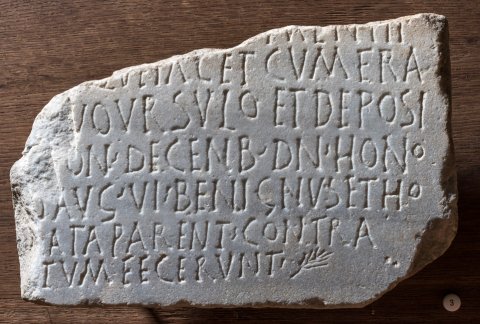 IACET CVM ERA
VRSVLO ET DEPOSI
ON·DECENB·DN·HONO
AVG·VI·BENIIGNVS ET HO
ATA PARENT·CONTRA
TVM FECERVNT·
3